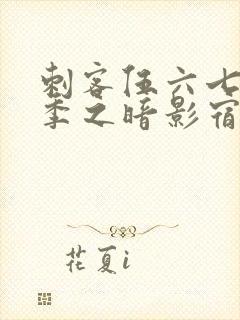 刺客伍六七
季之暗影宿
花夏i